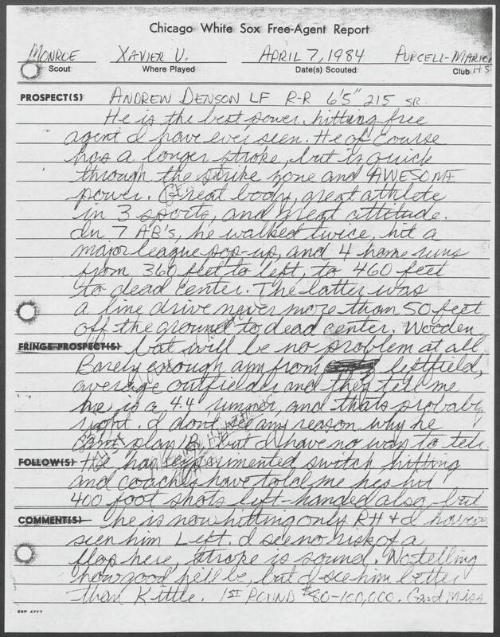 Chicago White Sox Free-Agent Report
MONROE XAVIER U. APRIL 7, 1984 PURCELL-MARION H.S
Scout Where Played Date(s) Scouted Club
PROSPECT(S) ANDREW DENSON LF R-R 6'5" 215 SR.
He is the best power hitting free
agent I have ever seen. He of course
has a longer stroke, but is quick
through the strike zone and AWESOME
power. Great body, great athlete
in 3 sports, and great attitude.
In 7 AB's, he walked twice, hit a
major league pop-up, and 4 home runs
from 360 feet to left, to 460 feet
to dead center. The latter was
a line drive never more than 50 feet
off the ground to dead center. Wooden
FRINGE PROSPECT(S) bat will be no problem at all
Barely enough arm from leftfield,
average outfielder and they tell me
he is a 4.4 runner, and that's probably
right. I don't see any reason why he
can't play 1B, but I have no way to tell.
FOLLOW(S) He has experimented switch hitting
and coaches have told me he's hit
400 foot shots left-handed also, but
COMMENT(S) he is now hitting only RH & I haven't
seen him Left. I see no risk of a
flop here, stroke is sound. No telling
how good he'll be, but I see him better
than Kittle. 1ST ROUND $80-100,000. Good Miss